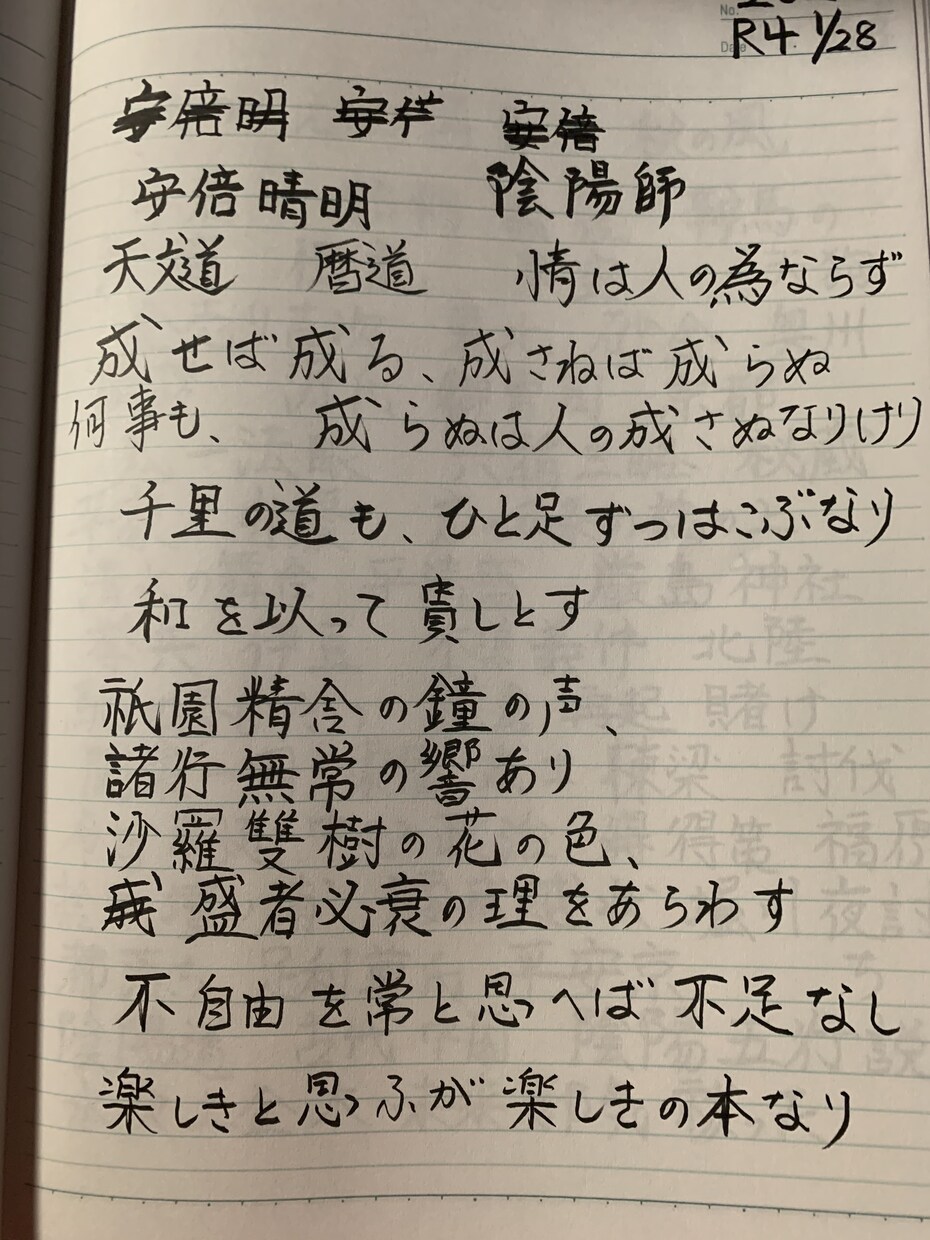 No.
Date R4 1/28
安倍明 安 安倍
安倍晴明 陰陽師
天文道 暦道 情は人の為ならず
成せば成る、成さねば成らぬ
何事も、 成らぬは人の成さぬなりけり
千里の道も、ひと足ずつはこぶなり
和を以って貴しとす
祇園精舎の鐘の声、
諸行無常の響あり
沙羅雙樹の花の色、
盛者必衰の理をあらわす
不自由を常と思へば不足なし
楽しきと思ふが楽しきの本なり